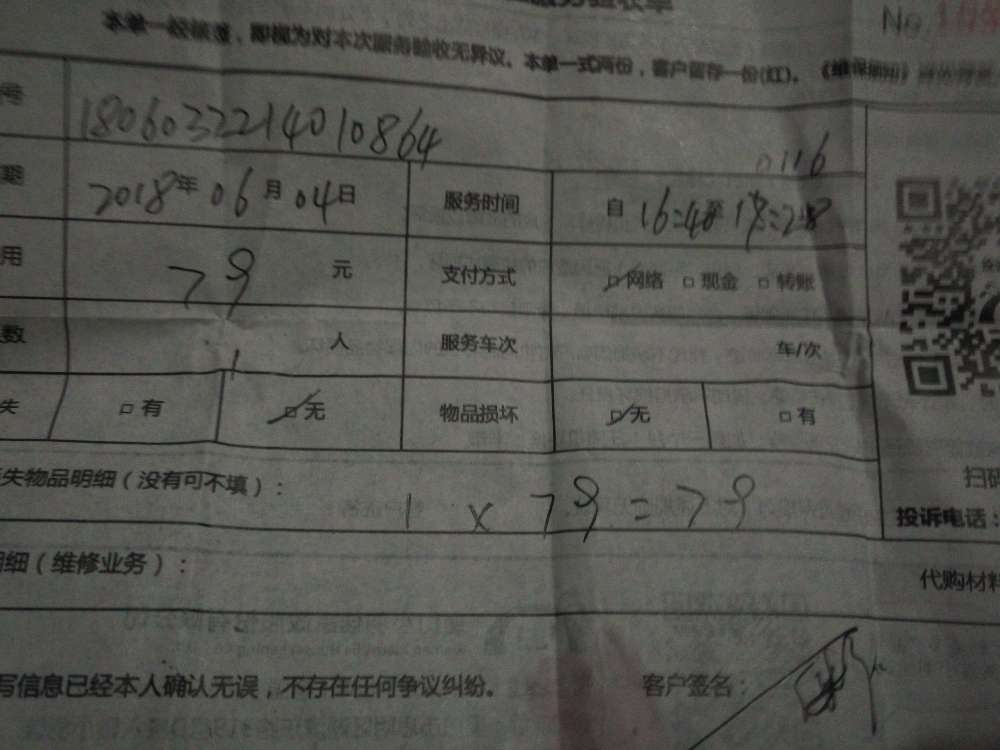 服务验收单
No.
本单一经核查,即视为对本次服务验收无异议。本单一式两份,客户留存一份(红)。
号 18060322214010864 0116
期 2018年06月04日 服务时间 自16:40至
用 79 元 支付方式 ☑网络 □现金 □转账
数 1 人 服务车次 年/次
失 □有 ☑无 物品损坏 ☑无 □有
失物品明细(没有可不填): 1 x 79 = 79
扫码
投诉电话:
细(维修业务):
代购材料
写信息已经本人确认无误,不存在任何争议纠纷。 客户签名: